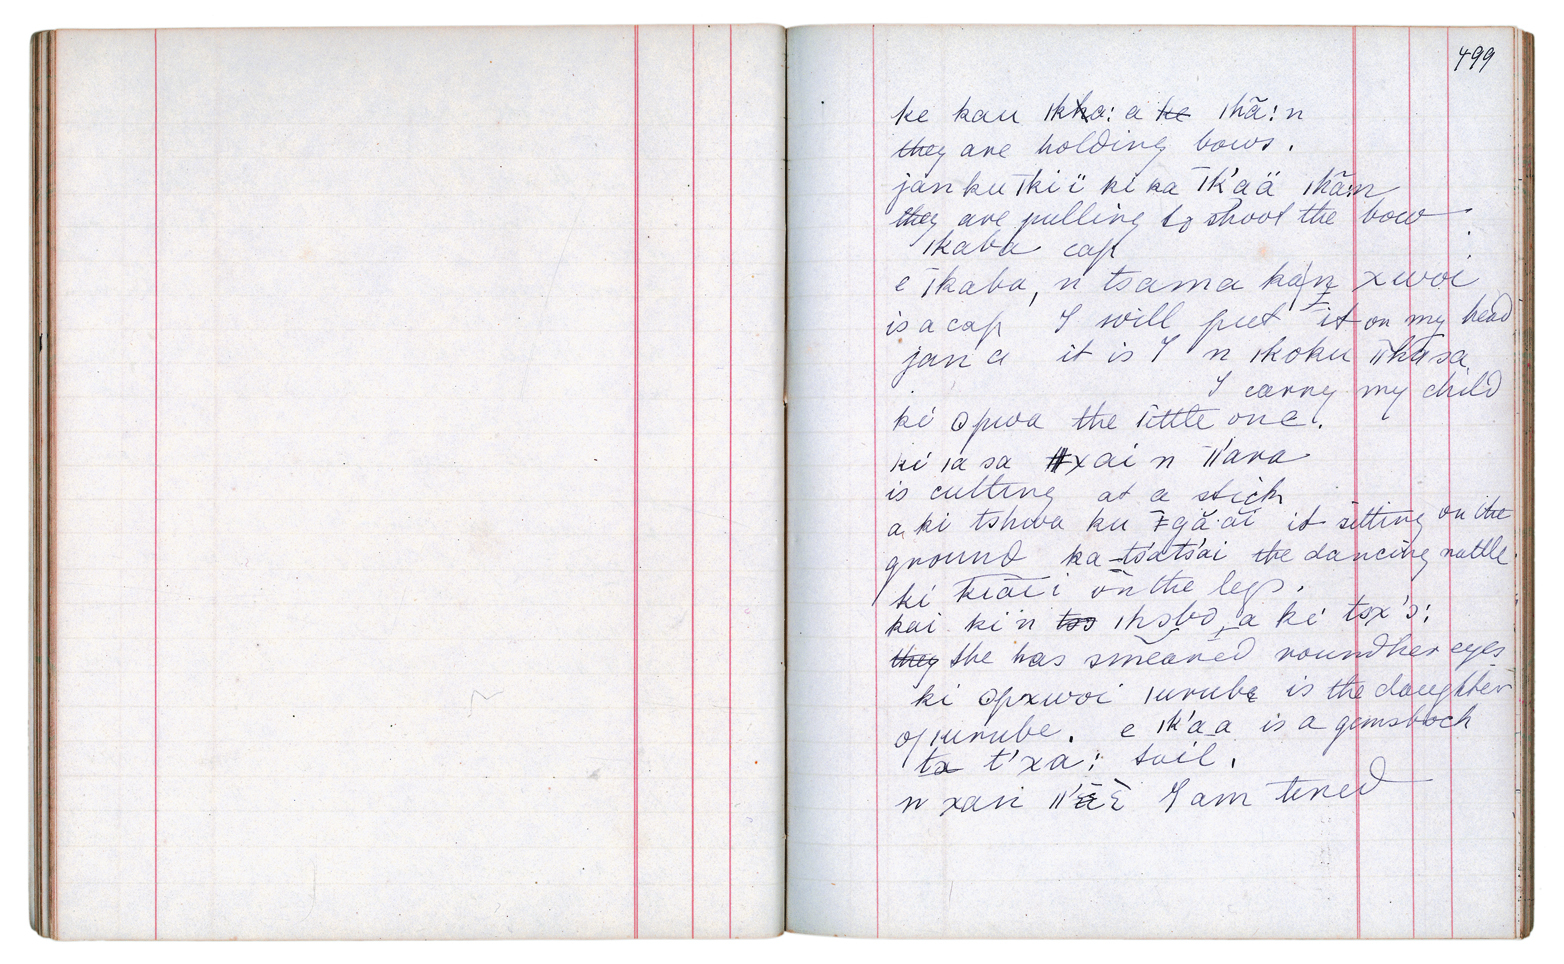 499
ke kau ıkka: a ke ıhã: n
they are holding bows.
janku ıkiï ki ka ık'aä ıkãın
they are pulling to shoot the bow
ıkaba cap
e ıkaba, n tsama kan xwoi
is a cap I will put it on my head
jan a it is I n ıkoku ıı̄kusa
I carry my child
ki ʘpwa the little one.
ki ıa sa xai n ıı'ara
is cutting at a stick
a ki tshwa ku ǂgä ai it sitting on the
ground ka-ts'ats'ai the dancing rattle
ki kıāı i on the legs.
kai ki n tso ıhobo, a ki tsx'ɔ:
they she has smeared round her eyes
ki ʘpxwoi ıurube is the daughter
of ıurube. e ık'a a is a gemsboch
tx t'xa: soil.
n xan ıı'ɛ̃ɛ̃ I am tired